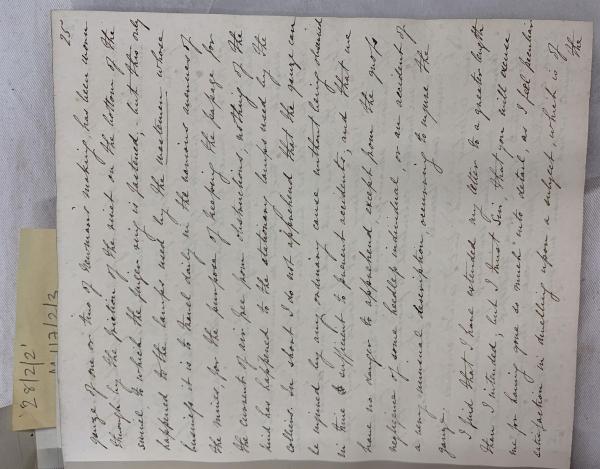 25
gauze of one or two of Newman's making, has been worn
through by the friction of the rivet on the bottom of the
swivel to which the finger ring is fastened, but this only
happened to the lamps used by the wastemen whose
business it is to travel daily in the various avenues of
the mines, for the purpose of keeping the passage for
the current of air free from obstructions, nothing of the
kind has happened to the stationary lamps used by the
colliers. In short I do not apprehend that the gauze can
be injured by any ordinary cause without being observed
in time sufficient to prevent accidents, and that we
have no danger to apprehend except from the gross
negligence of some heedless individual, or an accident of
a very unusual description, occurring to injure the
gauze.
I find that I have extended my letter to a greater length
than I intended, but I trust Sir, that you will excuse
me for having gone so much into detail, as I feel peculiar
satisfaction in dwelling upon a subject, which is of
the
28/2/2'
17/2/3